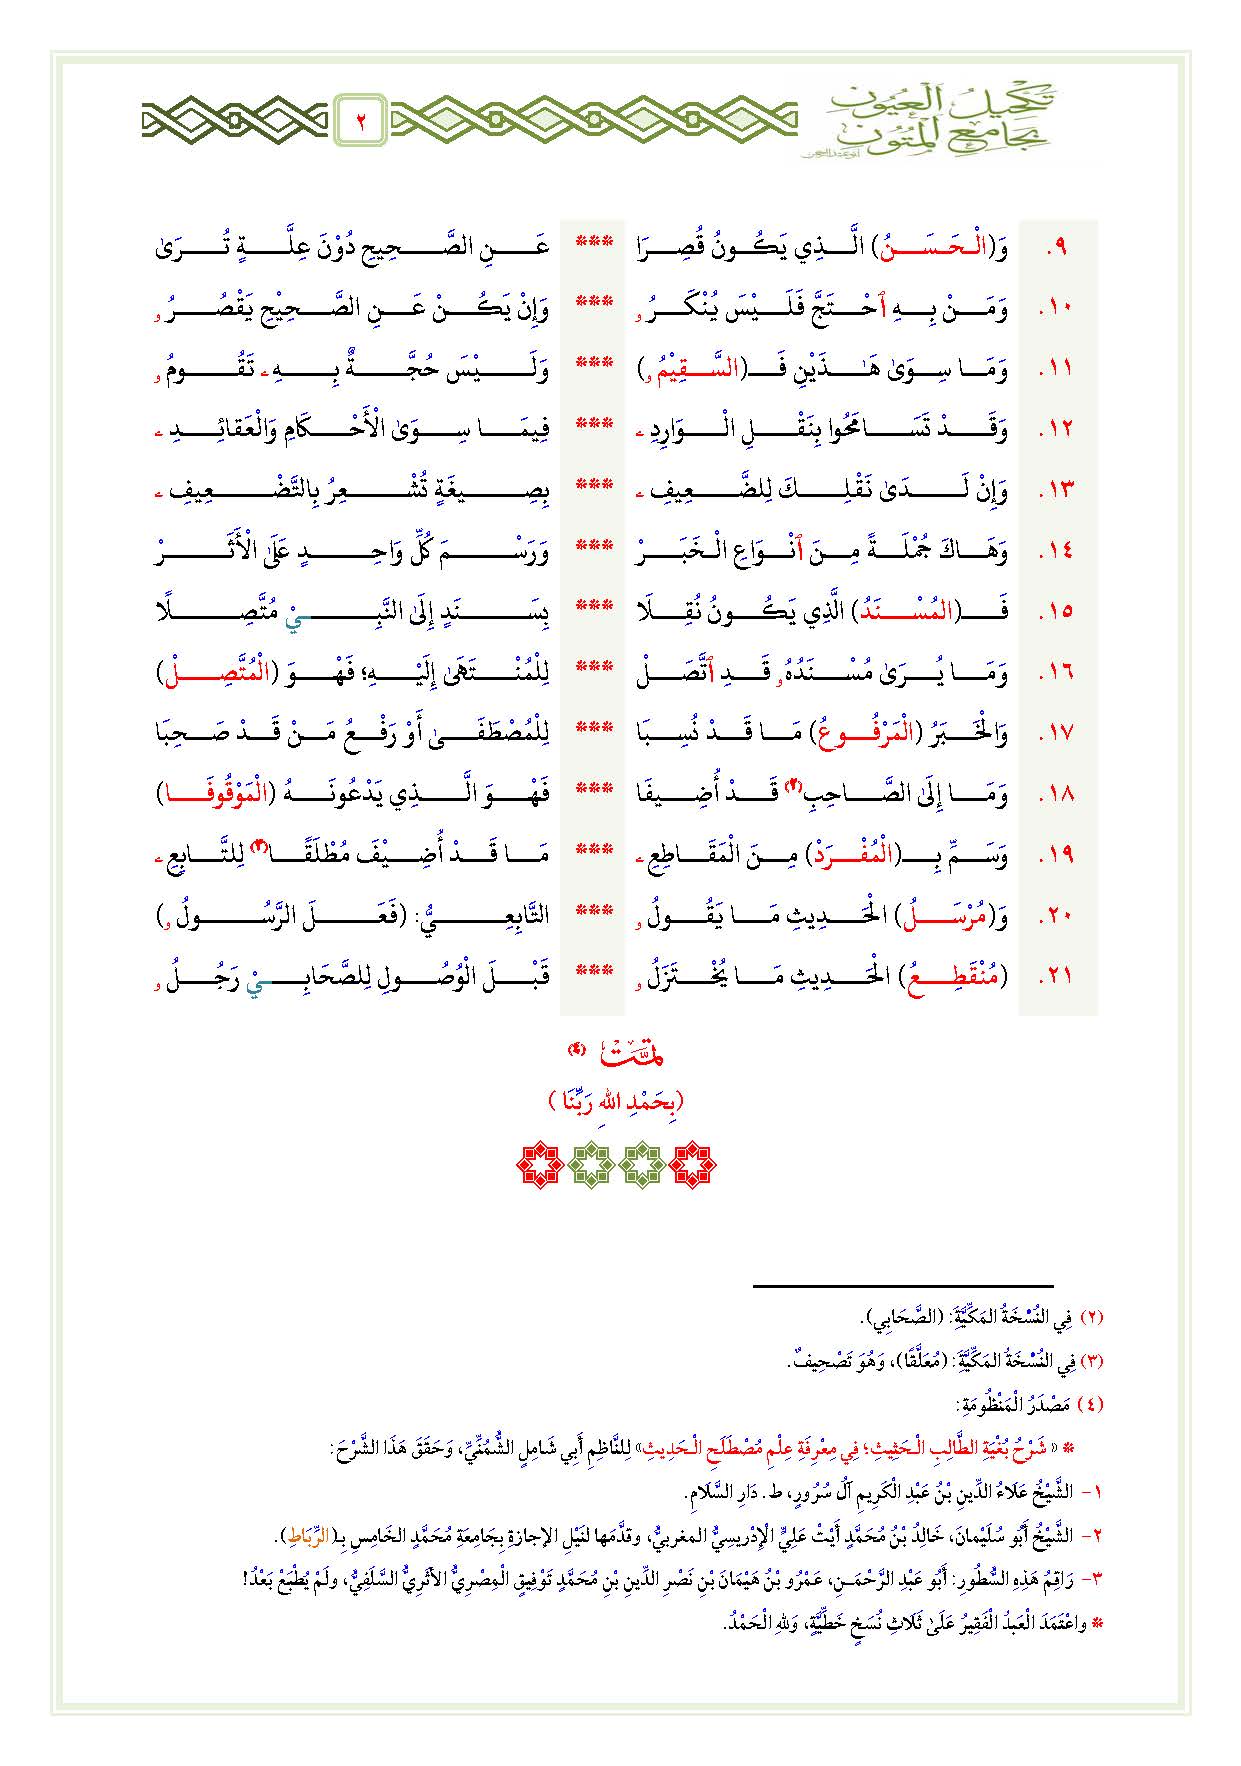 تكحيل العيون
بجامع المتون
٢
٩. وَ(الْحَسَنُ) الَّذِي يَكُونُ قُصِرَا *** عَنِ الصَّحِيحِ دُوْنَ عِلَّةٍ تُرَىٰ
١٠. وَمَنْ بِهِ ٱحْتَجَّ فَلَيْسَ يُنْكَرُ و *** وَإِنْ يَكُنْ عَنِ الصَّحِيْحِ يَقْصُرُ و
١١. وَمَا سِوَىٰ هَـٰذَيْنِ فَـ(السَّقِيْمُ و) *** وَلَيْسَ حُجَّةٌ بِهِ ے تَقُومُ و
١٢. وَقَدْ تَسَامَحُوا بِنَقْلِ الْوَارِدِ ے *** فِيمَا سِوَىٰ الْأَحْكَامِ وَالْعَقائِدِ ے
١٣. وَإِنْ لَدَىٰ نَقْلِكَ لِلضَّعِيفِ ے *** بِصِيغَةٍ تُشْعِرُ بِالتَّضْعِيفِ ے
١٤. وَهَاكَ جُمْلَةً مِنَ ٱنْوَاعِ الْخَبَرْ *** وَرَسْمَ كُلِّ وَاحِدٍ عَلَىٰ الْأَثَرْ
١٥. فَـ(المُسْنَدُ) الَّذِي يَكُونُ نُقِلَا *** بِسَنَدٍ إِلَىٰ النَّبِيْ مُتَّصِلًا
١٦. وَمَا يُرَىٰ مُسْنَدُهُ و قَدِ ٱتَّصَلْ *** لِلْمُنْتَهَىٰ إِلَيْهِ؛ فَهْوَ (الْمُتَّصِلْ)
١٧. وَالْخَبَرُ (الْمَرْفُوعُ) مَا قَدْ نُسِبَا *** لِلْمُصْطَفَىٰ أَوْ رَفْعُ مَنْ قَدْ صَحِبَا
١٨. وَمَا إِلَىٰ الصَّاحِبِ(٢) قَدْ أُضِيفَا *** فَهْوَ الَّذِي يَدْعُونَهُ (الْمَوْقُوفَا)
١٩. وَسَمِّ بِـ(الْمُفْرَدْ) مِنَ الْمَقَاطِعِ ے *** مَا قَدْ أُضِيْفَ مُطْلَقًا(٣) لِلتَّابِعِ ے
٢٠. وَ(مُرْسَلُ) الْحَدِيثِ مَا يَقُولُ و *** التَّابِعِيُّ: (فَعَلَ الرَّسُولُ و)
٢١. (مُنْقَطِعُ) الْحَدِيثِ مَا يُخْتَزَلُ و *** قَبْلَ الْوُصُولِ لِلصَّحَابِيْ رَجُلُ و
تمَّتْ (٤)
(بِحَمْدِ اللهِ رَبِّنَا)
(٢) فِي النُسْخَةُ المَكِّيَّةَ: (الصَّحَابِي).
(٣) فِي النُسْخَةُ المَكِّيَّةَ: (مُعَلَّقًا)، وَهُوَ تَصْحِيفٌ.
(٤) مَصْدَرُ الْمَنْظُومَةِ:
* « شَرْحُ بُغْيَةِ الطَّالِبِ الْحَثِيثِ؛ فِي مَعْرِفَةِ عِلْمِ مُصْطَلَحِ الْحَدِيثِ» لِلنَّاظِمِ أَبِي شَامِلٍ الشُّمُنِّيِّ، وَحَقَقَ هَذَا الشَّرْحَ:
١- الشَّيْخُ عَلَاءُ الدِّينِ بْنُ عَبْدِ الْكَرِيمِ آلُ سُرُورٍ، ط. دَارِ السَّلَامِ.
٢- الشَّيْخُ أَبُو سُلَيْمانَ، خَالِدُ بْنُ مُحَمَّدٍ أَيْتْ عَلِيٍّ الْإِدْرِيسِيُّ المغربيُّ، وقدَّمَها لنَيْلِ الإجازةِ بِجَامِعَةِ مُحَمَّدٍ الخَامِسِ بِـ(الرِّبَاطِ).
٣- رَاقِمُ هَذِهِ السُّطُورِ: أَبُو عَبْدِ الرَّحْمَـنِ، عَمْرُو بْنُ هَيْمَانَ بْنِ نَصْرِ الدِّينِ بْنِ مُحَمَّدٍ تَوْفِيقٍ الْمِصْرِيُّ الأَثَرِيُّ السَّلَفِيُّ، ولَمْ يُطْبَعْ بَعْدُ!
* واعْتَمَدَ الْعَبدُ الْفَقِيرُ عَلَىٰ ثَلَاثِ نُسَخٍ خَطِّيَّةٍ، وَللهِ الْحَمْدُ.